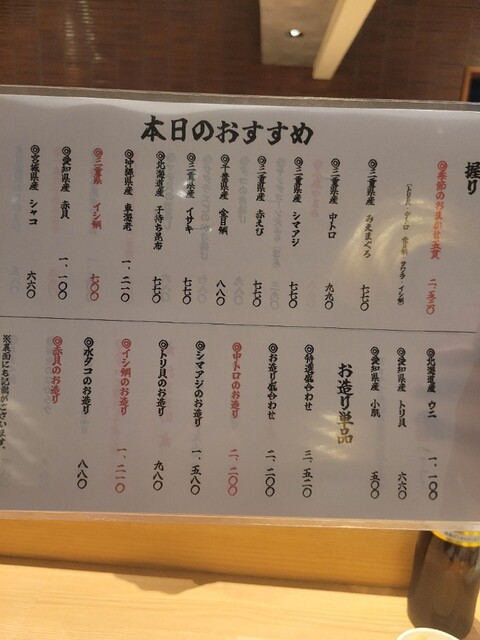 本日のおすすめ
握り
◎季節のおまかせ五貫 二、五三〇
◎三重県産 みえまぐろ 七七〇
◎三重県産 中トロ 九九〇
◎三重県産 シマアジ 七七〇
◎三重県産 赤えび 七七〇
◎千葉県産 金目鯛 八八〇
◎三重県産 イサキ 七七〇
◎北海道産 子持ち昆布 七七〇
◎沖縄県産 車海老 一、二一〇
◎三重県 イシ鯛 七〇〇
◎愛知県産 赤貝 一、一〇〇
◎宮城県産 シャコ 六六〇
◎北海道産 ウニ 一、一〇〇
◎愛知県産 トリ貝 六六〇
◎愛知県産 小肌 五〇〇
お造り単品
◎特選盛合わせ 三、五二〇
◎お造り盛合わせ 二、二〇〇
◎中トロのお造り 二、二〇〇
◎シマアジのお造り 一、五八〇
◎トリ貝のお造り 九八〇
◎イシ鯛のお造り 一、二一〇
◎水タコのお造り 八八〇
◎赤貝のお造り
※裏面にも記載がございます。